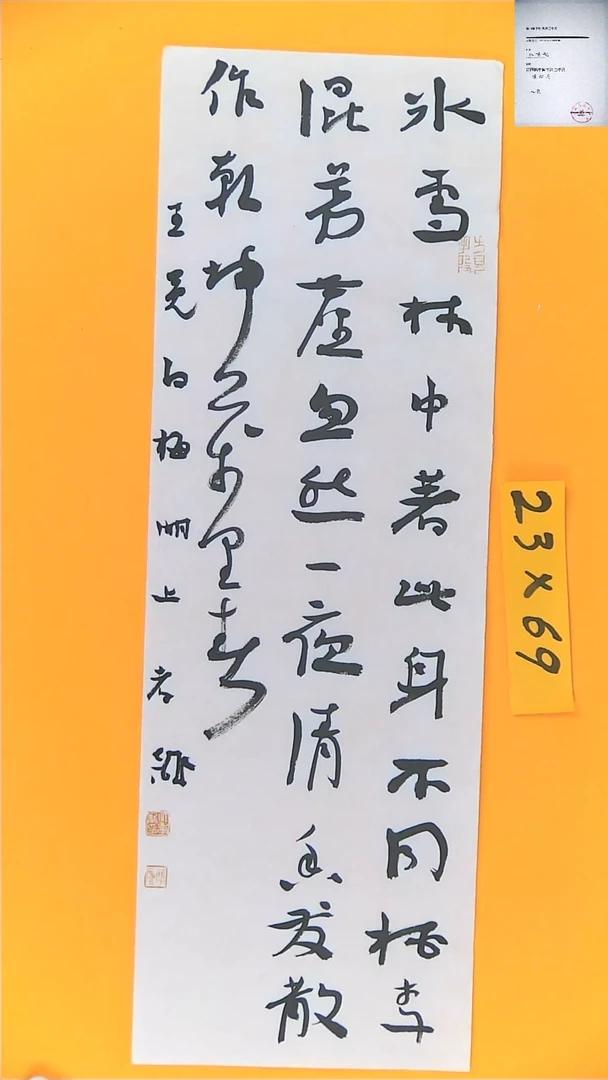 冰雪林中著此身不同桃李
混芳塵忽然一夜清香发散
作乾坤萬里春
王冕白梅 上
23×69